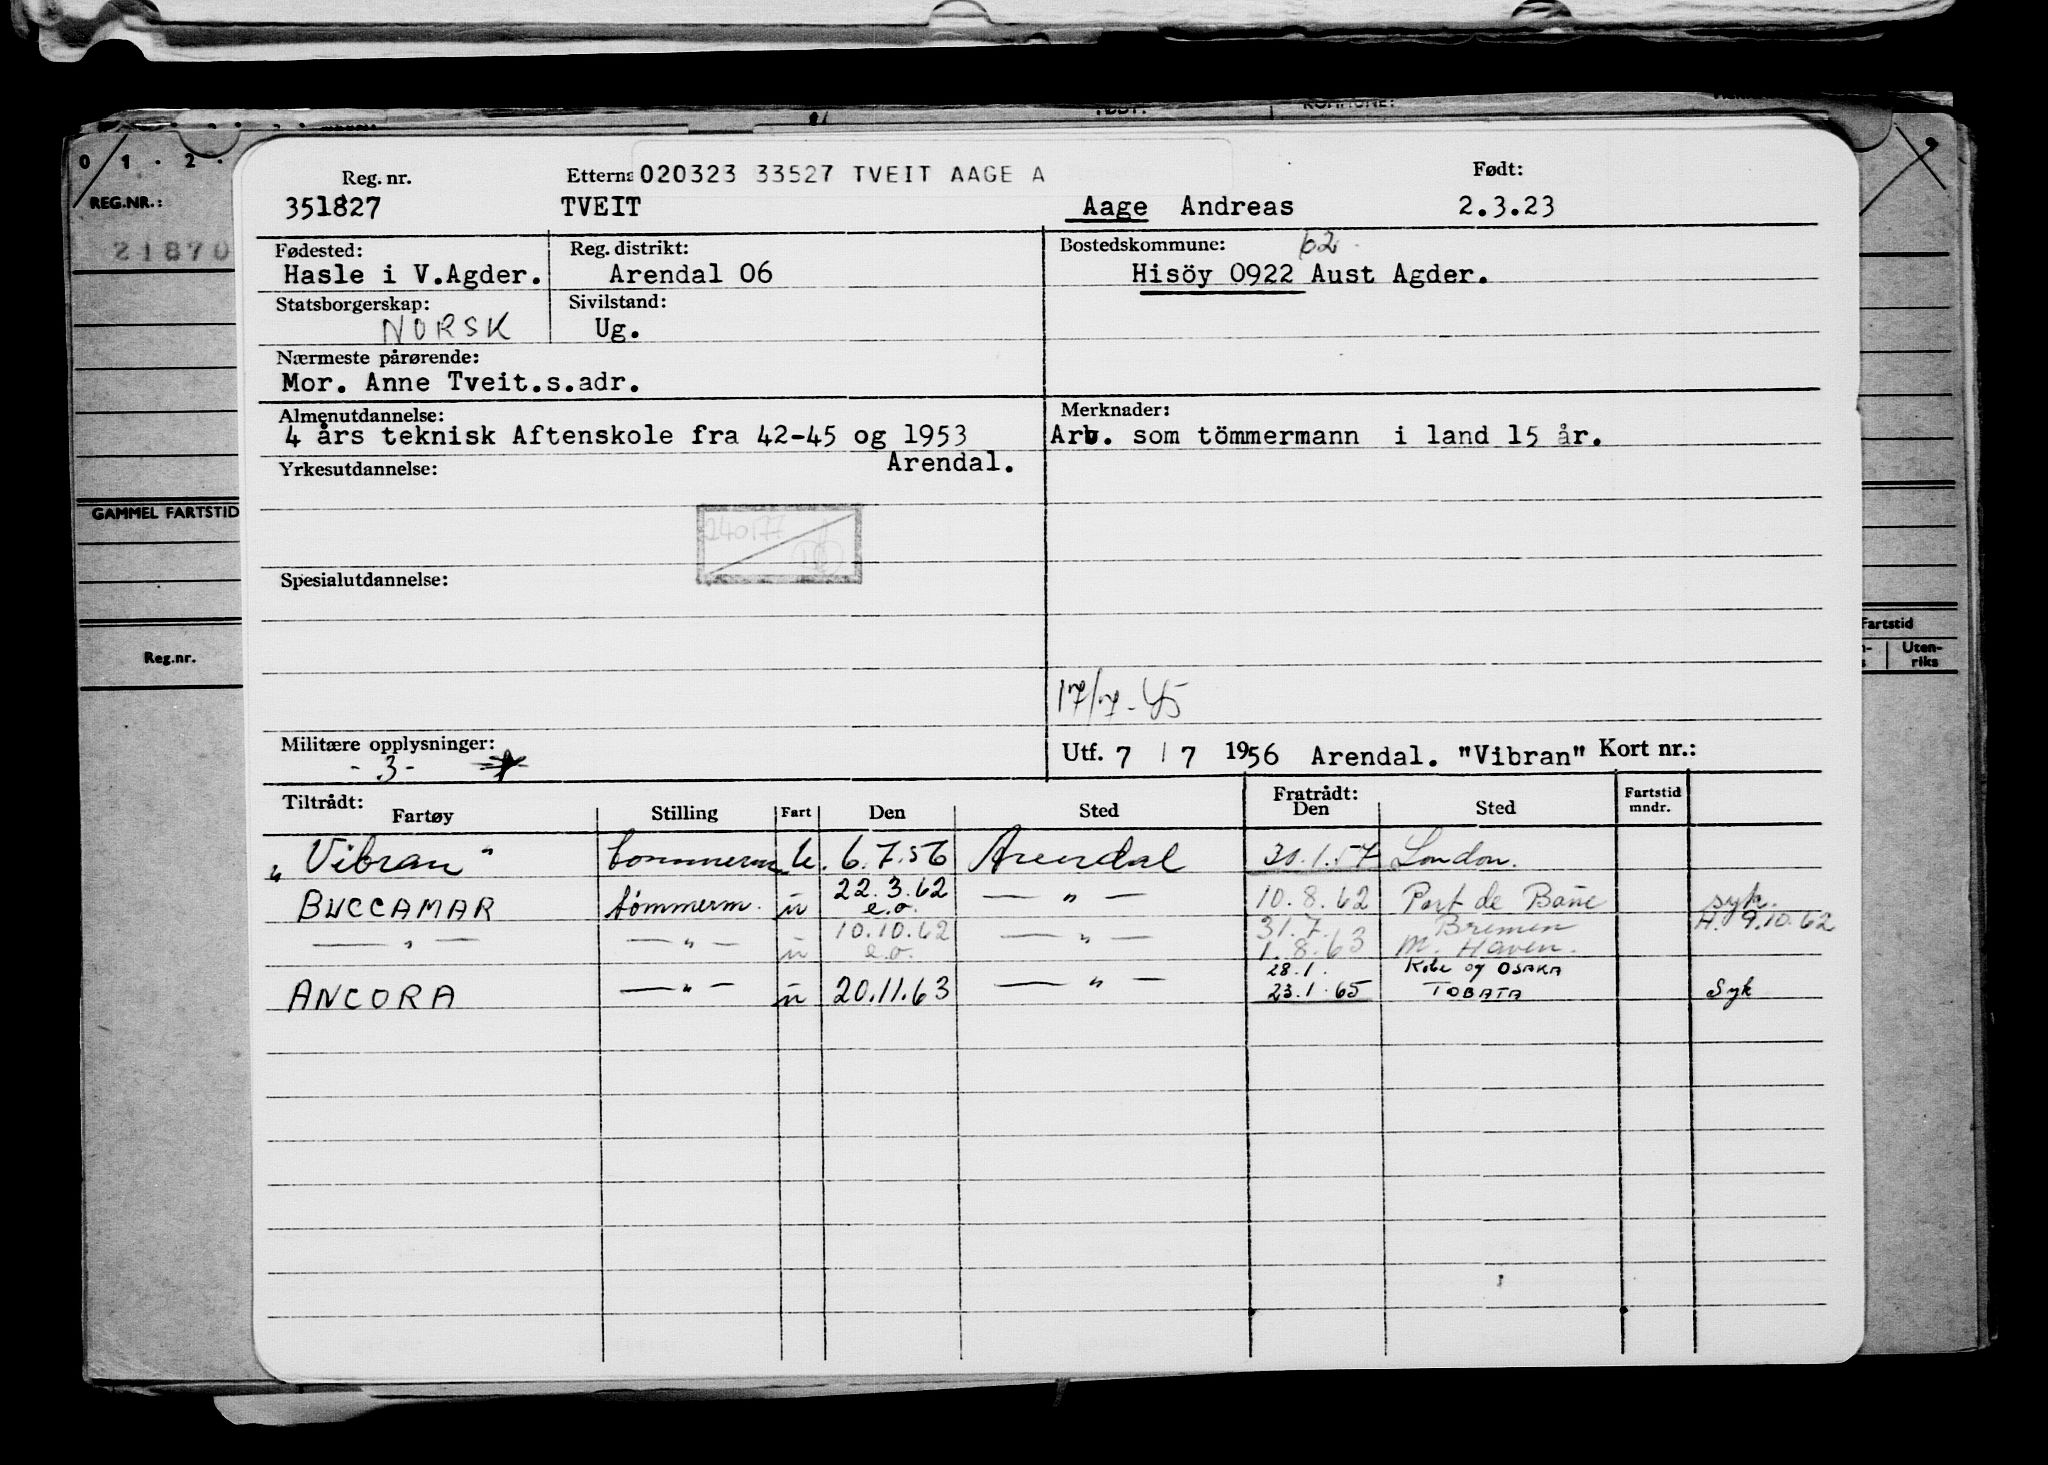 FØDT: KOMMUNE:
0 1 . 2 .
REG.NR.:
21870
GAMMEL FARTSTID
Reg.nr.
Fartstid
Uten-
riks
Reg. nr. Etterna 020323 33527 TVEIT AAGE A Født:
351827 TVEIT Aage Andreas 2.3.23
Fødested: Reg. distrikt: Bostedskommune: 62
Hasle i V.Agder. Arendal 06 Hisöy 0922 Aust Agder.
Statsborgerskap: Sivilstand:
NORSK Ug.
Nærmeste pårørende:
Mor. Anne Tveit.s.adr.
Almenutdannelse: Merknader:
4 års teknisk Aftenskole fra 42-45 og 1953 Arb. som tömmermann i land 15 år.
Yrkesutdannelse: Arendal.
240177
Spesialutdannelse:
17/7-45
Militære opplysninger: Utf. 7 / 7 1956 Arendal. "Vibran" Kort nr.:
- 3 -
Tiltrådt: Fratrådt: Fartstid
Fartøy Stilling Fart Den Sted Den Sted mndr.
"Vibran" tommerm u. 6.7.56 Arendal 30.1.57 London.
BUCCAMAR tømmerm. u 22.3.62 — " — 10.8.62 Port de Bouc syk.
e.o. H. 9.10.62
— " — — " — u 10.10.62 — " — 31.7. Bremen
e.o. 1.8.63 M. Haven.
28.1. Kobe og OSAKA
ANCORA — " — u 20.11.63 — " — 23.1.65 TOBATA Syk